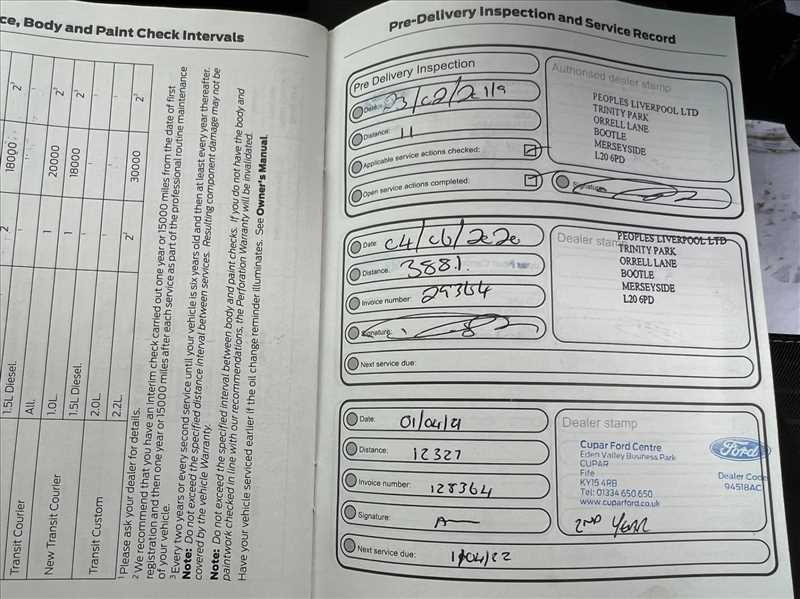 ce, Body and Paint Check Intervals
18000 2³
20000 2³
18000 2³
30000 2³
2
1
1
2¹
1.5L Diesel.
All.
1.0L
1.5L Diesel.
2.0L
2.2L
Transit Courier
New Transit Courier
Transit Custom
¹ Please ask your dealer for details.
² We recommend that you have an Interim check carried out one year or 15000 miles from the date of first
registration and then one year or 15000 miles after each service as part of the professional routine maintenance
of your vehicle.
³ Every two years or every second service until your vehicle is six years old and then at least every year thereafter.
Note: Do not exceed the specified distance interval between services. Resulting component damage may not be
covered by the vehicle Warranty.
Note: Do not exceed the specified interval between body and paint checks. If you do not have the body and
paintwork checked in line with our recommendations, the Perforation Warranty will be invalidated.
Have your vehicle serviced earlier if the oil change reminder illuminates. See Owner's Manual.
Pre-Delivery Inspection and Service Record
Pre Delivery Inspection
Date: 23/02/2019
Distance: 11
Applicable service actions checked:
Open service actions completed:
Authorised dealer stamp
PEOPLES LIVERPOOL LTD
TRINITY PARK
ORRELL LANE
BOOTLE
MERSEYSIDE
L20 6PD
Signature:
Date: 04/06/2020
Distance: 3881.
Invoice number: 29364
Signature:
Next service due:
Dealer stamp
PEOPLES LIVERPOOL LTD
TRINITY PARK
ORRELL LANE
BOOTLE
MERSEYSIDE
L20 6PD
Date: 01/04/21
Distance: 12327
Invoice number: 128364
Signature:
Next service due: 1/04/22
Dealer stamp
Cupar Ford Centre
Eden Valley Business Park
CUPAR
Fife
KY15 4RB
Tel: 01334 650 650
www.cuparford.co.uk
Ford
Dealer Code
94518AC
2ND YEAR